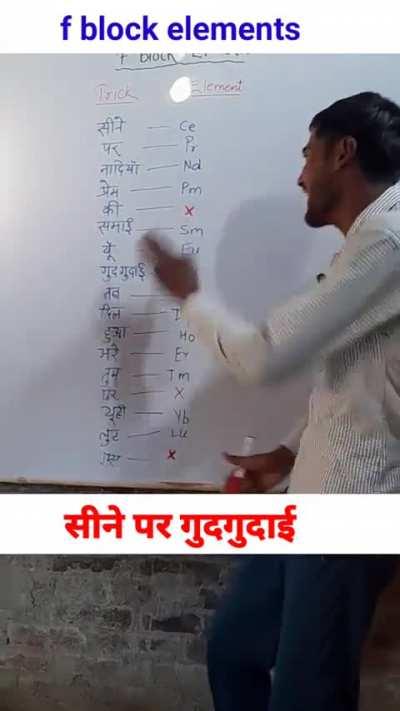 f block elements
Trick Element
सीने — Ce
पर — Pr
नादियाँ — Nd
प्रेम — Pm
की — x
समाई — Sm
यू — Eu
गुदगुदाई
तब —
दिल —
हुआ — Ho
मरे — Er
तुम — Tm
पर — X
यूही — Yb
लुट — Lu
x
सीने पर गुदगुदाई